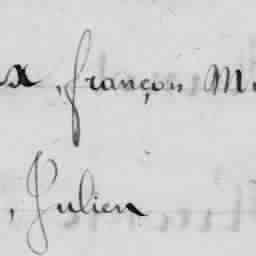 x, françois M
, Julien